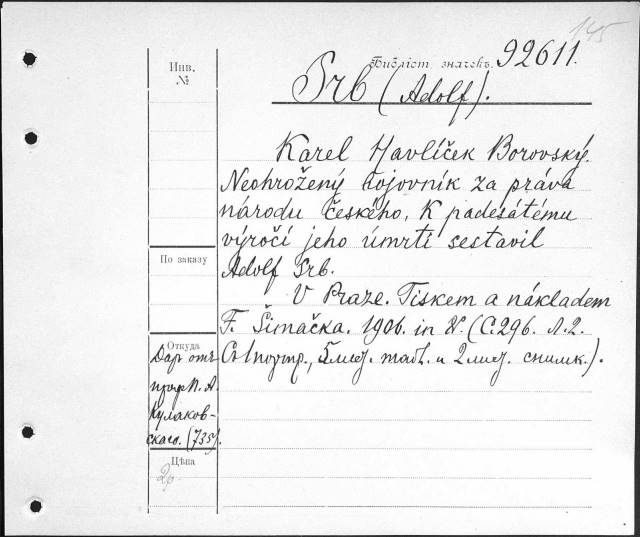 145
Инв.
№
Библіот. значекъ. 92611.
Srb (Adolf).
Karel Havlíček Borovský.
Neohrožený bojovník za práva
národu českého. K padesátému
výročí jeho úmrtí sestavil
Adolf Srb.
V Praze. Tiskem a nákladem
F. Šimáčka. 1906. in 8°. (С. 296. Л. 2.
С 1 портр., 5 лист. табл. и 2 лист. снимк.).
По заказу
Откуда
Даръ отъ
проф. П. А.
Кулаков-
скаго. (735).
Цѣна
2р.